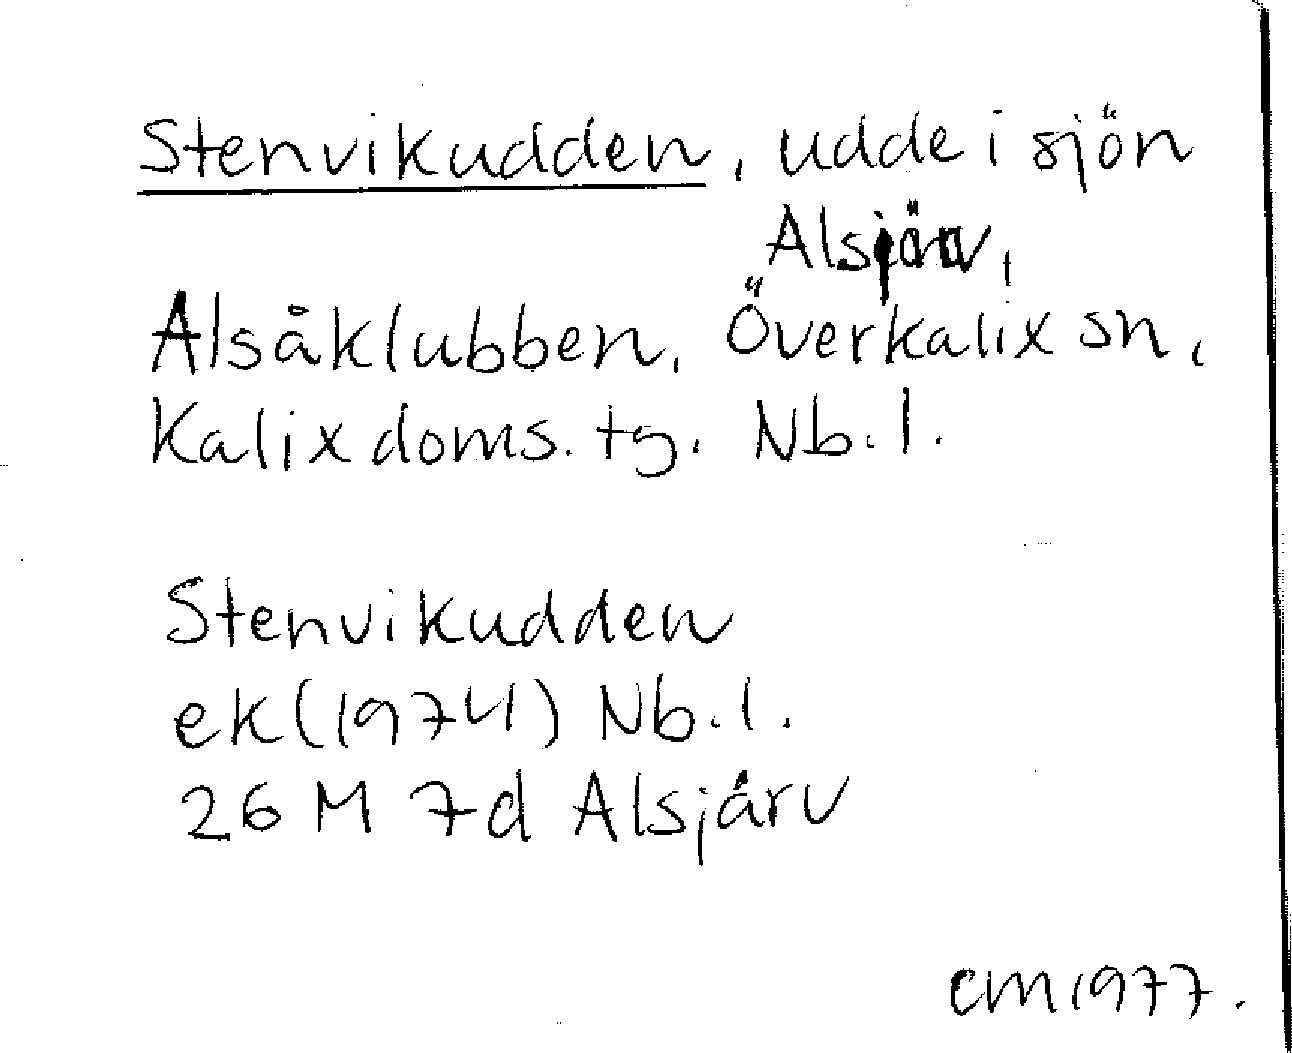 Stenvikudden, udde i sjön
Alsjärv,
Alsåklubben, Överkalix sn,
Kalix doms. tg. Nb. l.
Stenvikudden
ek (1974) Nb. l.
26 M 7d Alsjärv
CM 1977.